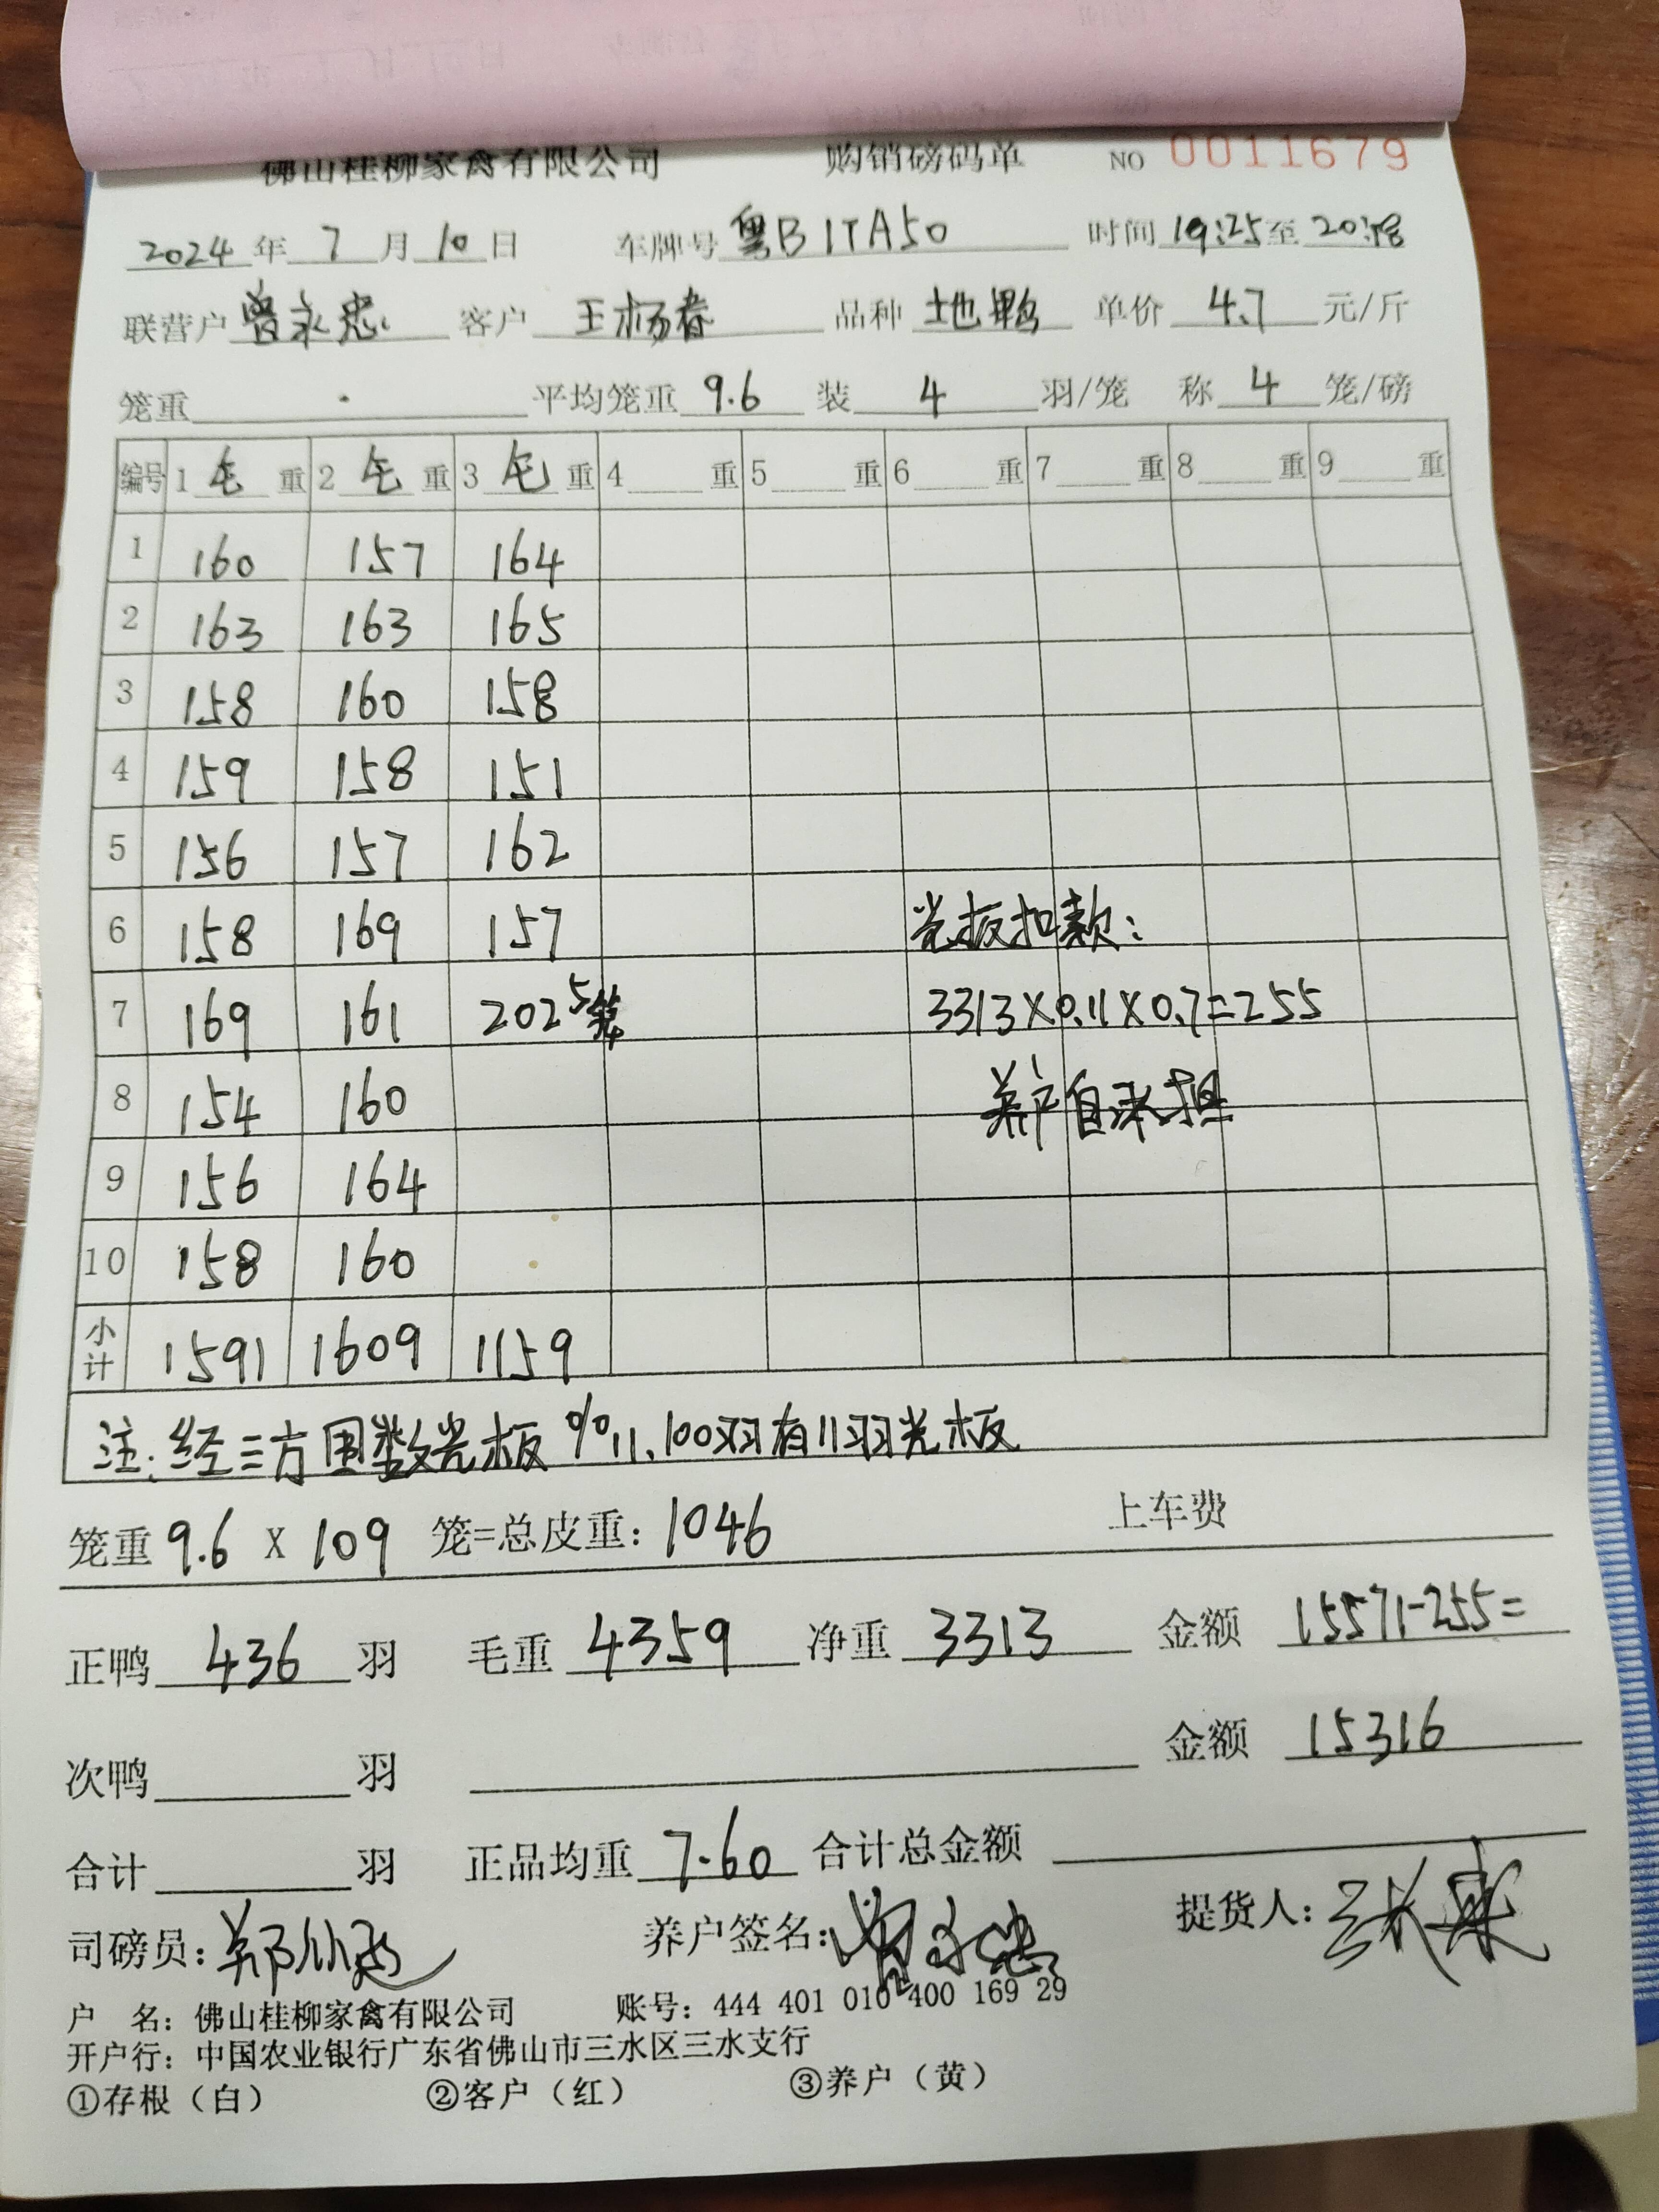 佛山桂柳家禽有限公司 购销磅码单 NO 0011679
2024 年 7 月 10 日 车牌号 粤B 1TA50 时间 19:25 至 20:18
联营户 曾永忠 客户 王杨春 品种 土地鸭 单价 4.7 元/斤
笼重 平均笼重 9.6 装 4 羽/笼 称 4 笼/磅
编号 1 毛 重 2 毛 重 3 毛 重 4 重 5 重 6 重 7 重 8 重 9 重
1 160 157 164
2 163 163 165
3 158 160 158
4 159 158 151
5 156 157 162
6 158 169 157 光板扣款:
7 169 161 202 5笼 3313×0.11×0.7=255
8 154 160 养户自承担
9 156 164
10 158 160
小计 1591 1609 1159
注:经三方围数光板 %11.100羽有11羽光板
笼重 9.6 X 109 笼=总皮重: 1046 上车费
正鸭 436 羽 毛重 4359 净重 3313 金额 15571-255=
次鸭 羽 金额 15316
合计 羽 正品均重 7.60 合计总金额
司磅员: 养户签名: 曾永忠 提货人:
户 名: 佛山桂柳家禽有限公司 账号: 444 401 010 400 169 29
开户行: 中国农业银行广东省佛山市三水区三水支行
①存根（白） ②客户（红） ③养户（黄）